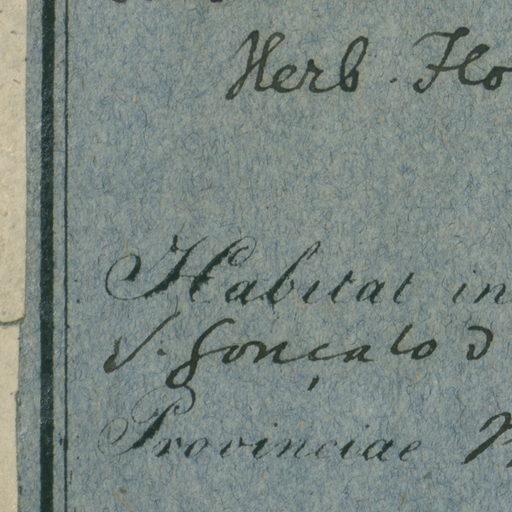 Herb. Flo
Habitat in
S. Gonçalo d
Provinciae